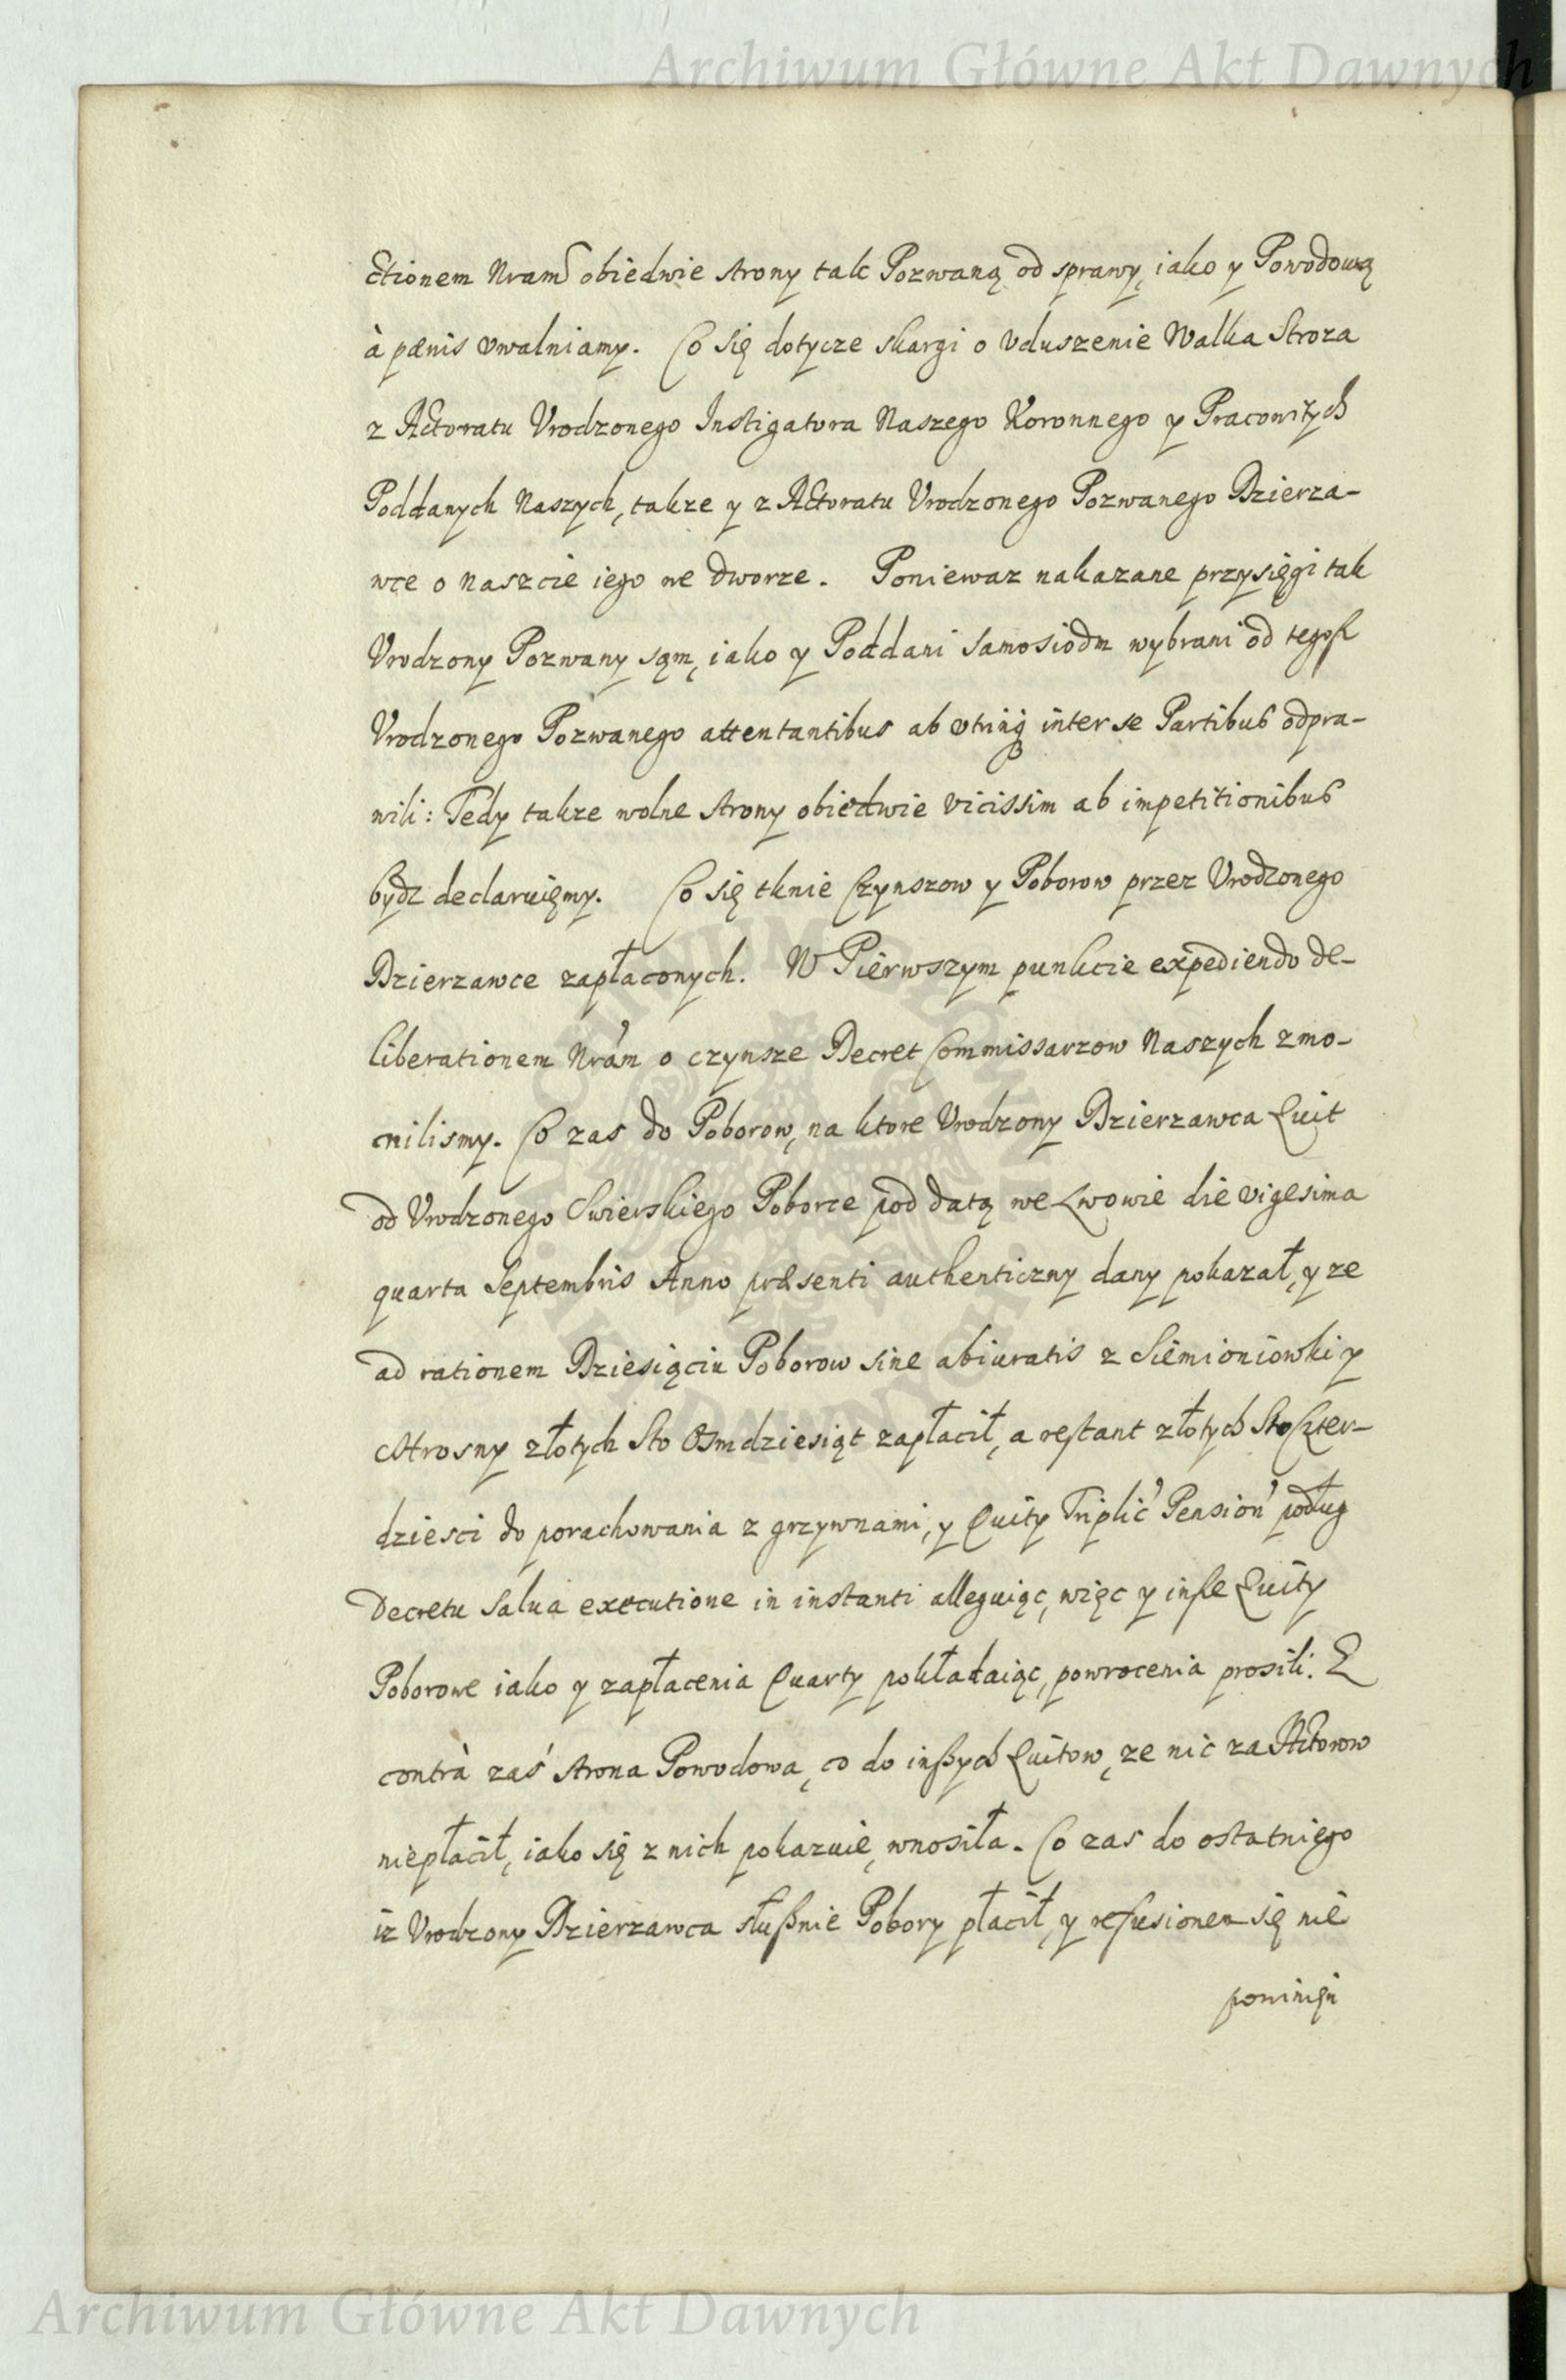 Archiwum Główne Akt Dawnych
ctionem Nram obiedwie strony tak Pozwaną od sprawy, iako y Powodową
à pænis vwalniamy. Co się dotycze skargi o vduszenie Walka Stroza
z Actoratu Vrodzonego Instigatora Naszego Koronnego y Pracowitych
Poddanych Naszych, takze y z Actoratu Vrodzonego Pozwanego Dzierza-
wce o naszcie iego we dworze. Poniewaz nakazane przysięgi tak
Vrodzony Pozwany sąm, iako y Poddani samosiodm wybrani od tegoß
Vrodzonego Pozwanego attentantibus ab vtrinq inter se Partibus odpra-
wili: Tedy takze wolne strony obiedwie vicissim ab impetitionibus
bydz declaruięmy. Co się tknie Czynszow y Poborow przez Vrodzonego
Dzierzawce zapłaconych. W Pierwszym punkcie expediendo de-
liberationem Nram o czynsze Decret Commissarzow Naszych zmo-
cnilismy. Co zas do Poborow, na ktore Vrodzony Dzierzawca Quit
od Vrodzonego Swierskiego Poborce pod datą we Lwowie die vigesima
quarta Septembris Anno præsenti authenticzny dany pokazał, y ze
ad rationem Dziesiąciu Poborow sine abiuratis z Siemioniowki y
Ostrosny złotych Sto Osmdziesiąt zapłacił, a restant złotych Sto Czter-
dziesci do porachowania z grzywnami, y Quity Triplic Pension podług
Decretu salua executione in instanti alleguiąc, więc y inße Quity
Poborowe iako y zapłacenia Quarty pokładaiąc, powrocenia prosili. E
contrà zaś strona Powodowa, co do inßych Quitow, ze nic za Actorow
niepłacił, iako się z nich pokazuie, wnosiła. Co zas do ostatniego
iz Vrodzony Dzierzawca słußnie Pobory płacił, y refusionem się nie
powinięn
Archiwum Główne Akt Dawnych